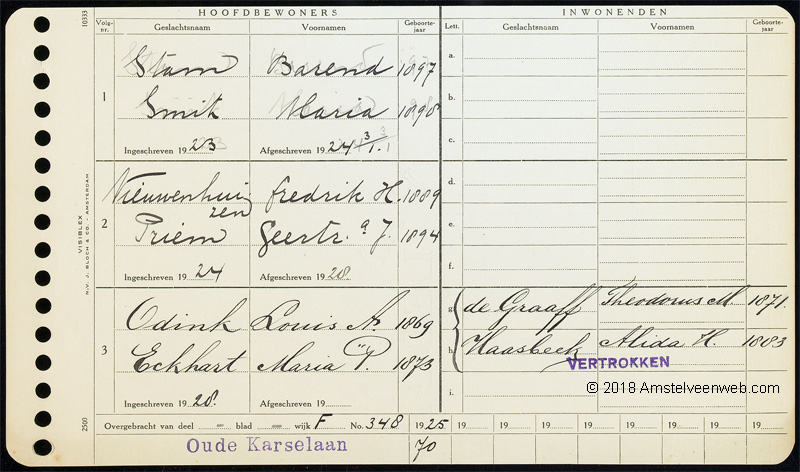 HOOFDBEWONERS
INWONENDEN
10333
Volg-nr.
Geslachtsnaam
Voornamen
Geboorte-jaar
Lett.
Geslachtsnaam
Voornamen
Geboorte-jaar
1
Stam Barend 1897
Smit Maria 1898
Ingeschreven 1923 Afgeschreven 1924 3/1.
2
Nieuwenhui- Fredrik H. 1889
zen
Priem Geertr.a J. 1894
Ingeschreven 1924 Afgeschreven 1928.
3
Odink Louis A. 1869
Eckhart Maria P. 1873
Ingeschreven 1928. Afgeschreven 19
a.
b.
c.
d.
e.
f.
g. de Graaff Theodorus M. 1871.
h. Haasbeek Alida H. 1883
VERTROKKEN
i.
© 2018 Amstelveenweb.com
VISIBLEX
N.V. J. BLOCH & CO. - AMSTERDAM
2500
Overgebracht van deel — blad — wijk F No. 348 1925 19 19 19 19 19 19 19
Oude Karselaan
70